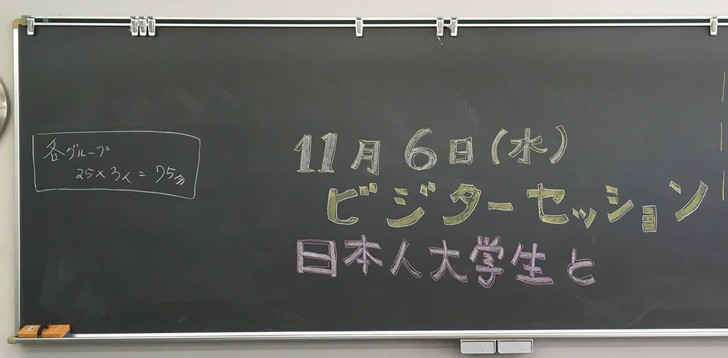 各グループ
25×3人=75分
11月6日(水)
ビジターセッション
日本人大学生と